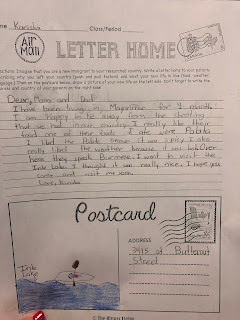 Name Karissa
Class/Period
AIR MAIL
LETTER HOME
Directions: Imagine that you are a new immigrant to your researched country. Write a letter home to your
describing why you left your country (push and pull factors), and what your new life is like (food, weather,
language). Then on the postcard below, draw a picture of your new life on the left side. Don't forget to write the
address and country of your parents on the right side.
Dear, Mom and Dad
I have been living in Mayanmar for 1 month.
I am happy to be away from the
that we had move country. I really like their
food one of their foods I ate were Palata
I liked the Palata because it was juicy I also
really liked the weather because it was wet. Over
here they speak Burmese. I want to visit the
Inle Lake I thought it was really nice. I hope you
come and visit me soon
Love, Karissa
Postcard
Inle
Lake
ADDRESS
3415 at Butternut
Street